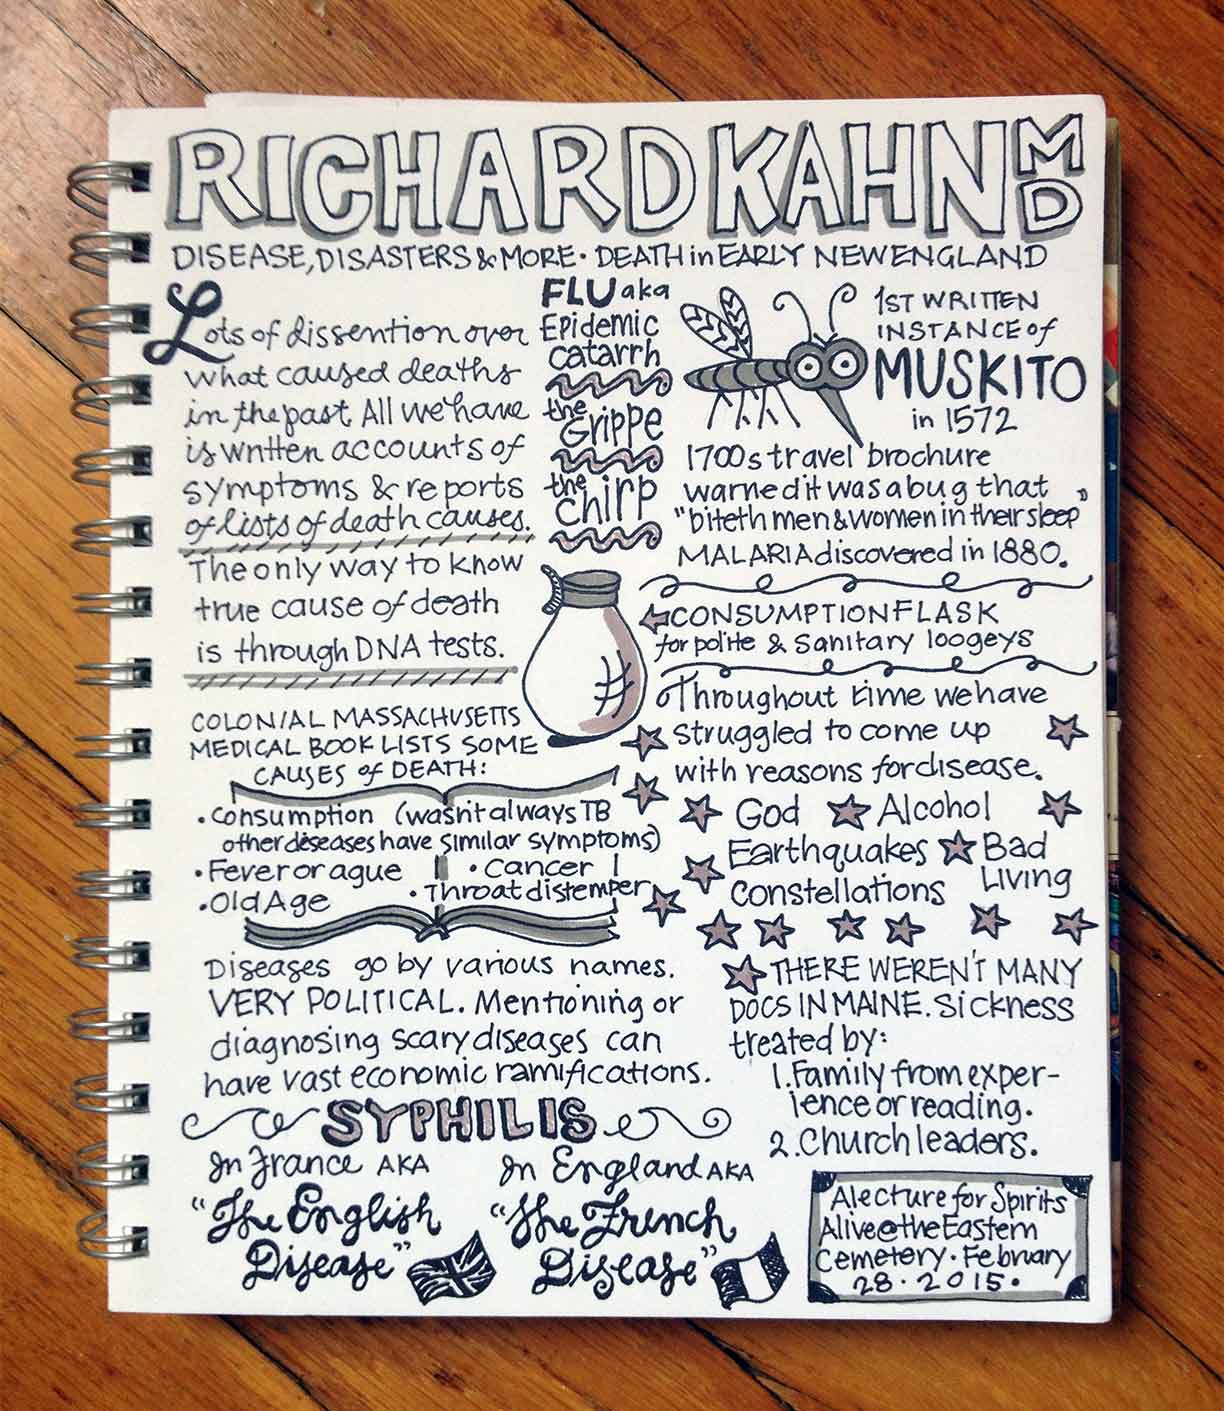 RICHARD KAHN MD
DISEASE, DISASTERS & MORE · DEATH in EARLY NEW ENGLAND
Lots of dissention over
what caused deaths
in the past. All we have
is written accounts of
symptoms & reports
of lists of death causes.
The only way to know
true cause of death
is through DNA tests.
FLU aka
Epidemic
catarrh
the
Grippe
the
chirp
1ST WRITTEN
INSTANCE of
MUSKITO
in 1572
1700s travel brochure
warned it was a bug that
"biteth men & women in their sleep"
MALARIA discovered in 1880.
CONSUMPTION FLASK
for polite & sanitary loogeys
COLONIAL MASSACHUSETTS
MEDICAL BOOK LISTS SOME
CAUSES of DEATH:
• Consumption (wasn't always TB
other diseases have similar symptoms)
• Fever or ague • Cancer
• Old Age • Throat distemper
Throughout time we have
struggled to come up
with reasons for disease.
God Alcohol
Earthquakes Bad
Living
Constellations
Diseases go by various names.
VERY POLITICAL. Mentioning or
diagnosing scary diseases can
have vast economic ramifications.
SYPHILIS
In France AKA
"The English
Disease"
In England AKA
"The French
Disease"
THERE WEREN'T MANY
DOCS IN MAINE. Sickness
treated by:
1. Family from exper-
ience or reading.
2. Church leaders.
A lecture for Spirits
Alive @ the Eastern
Cemetery · February
28 · 2015 ·